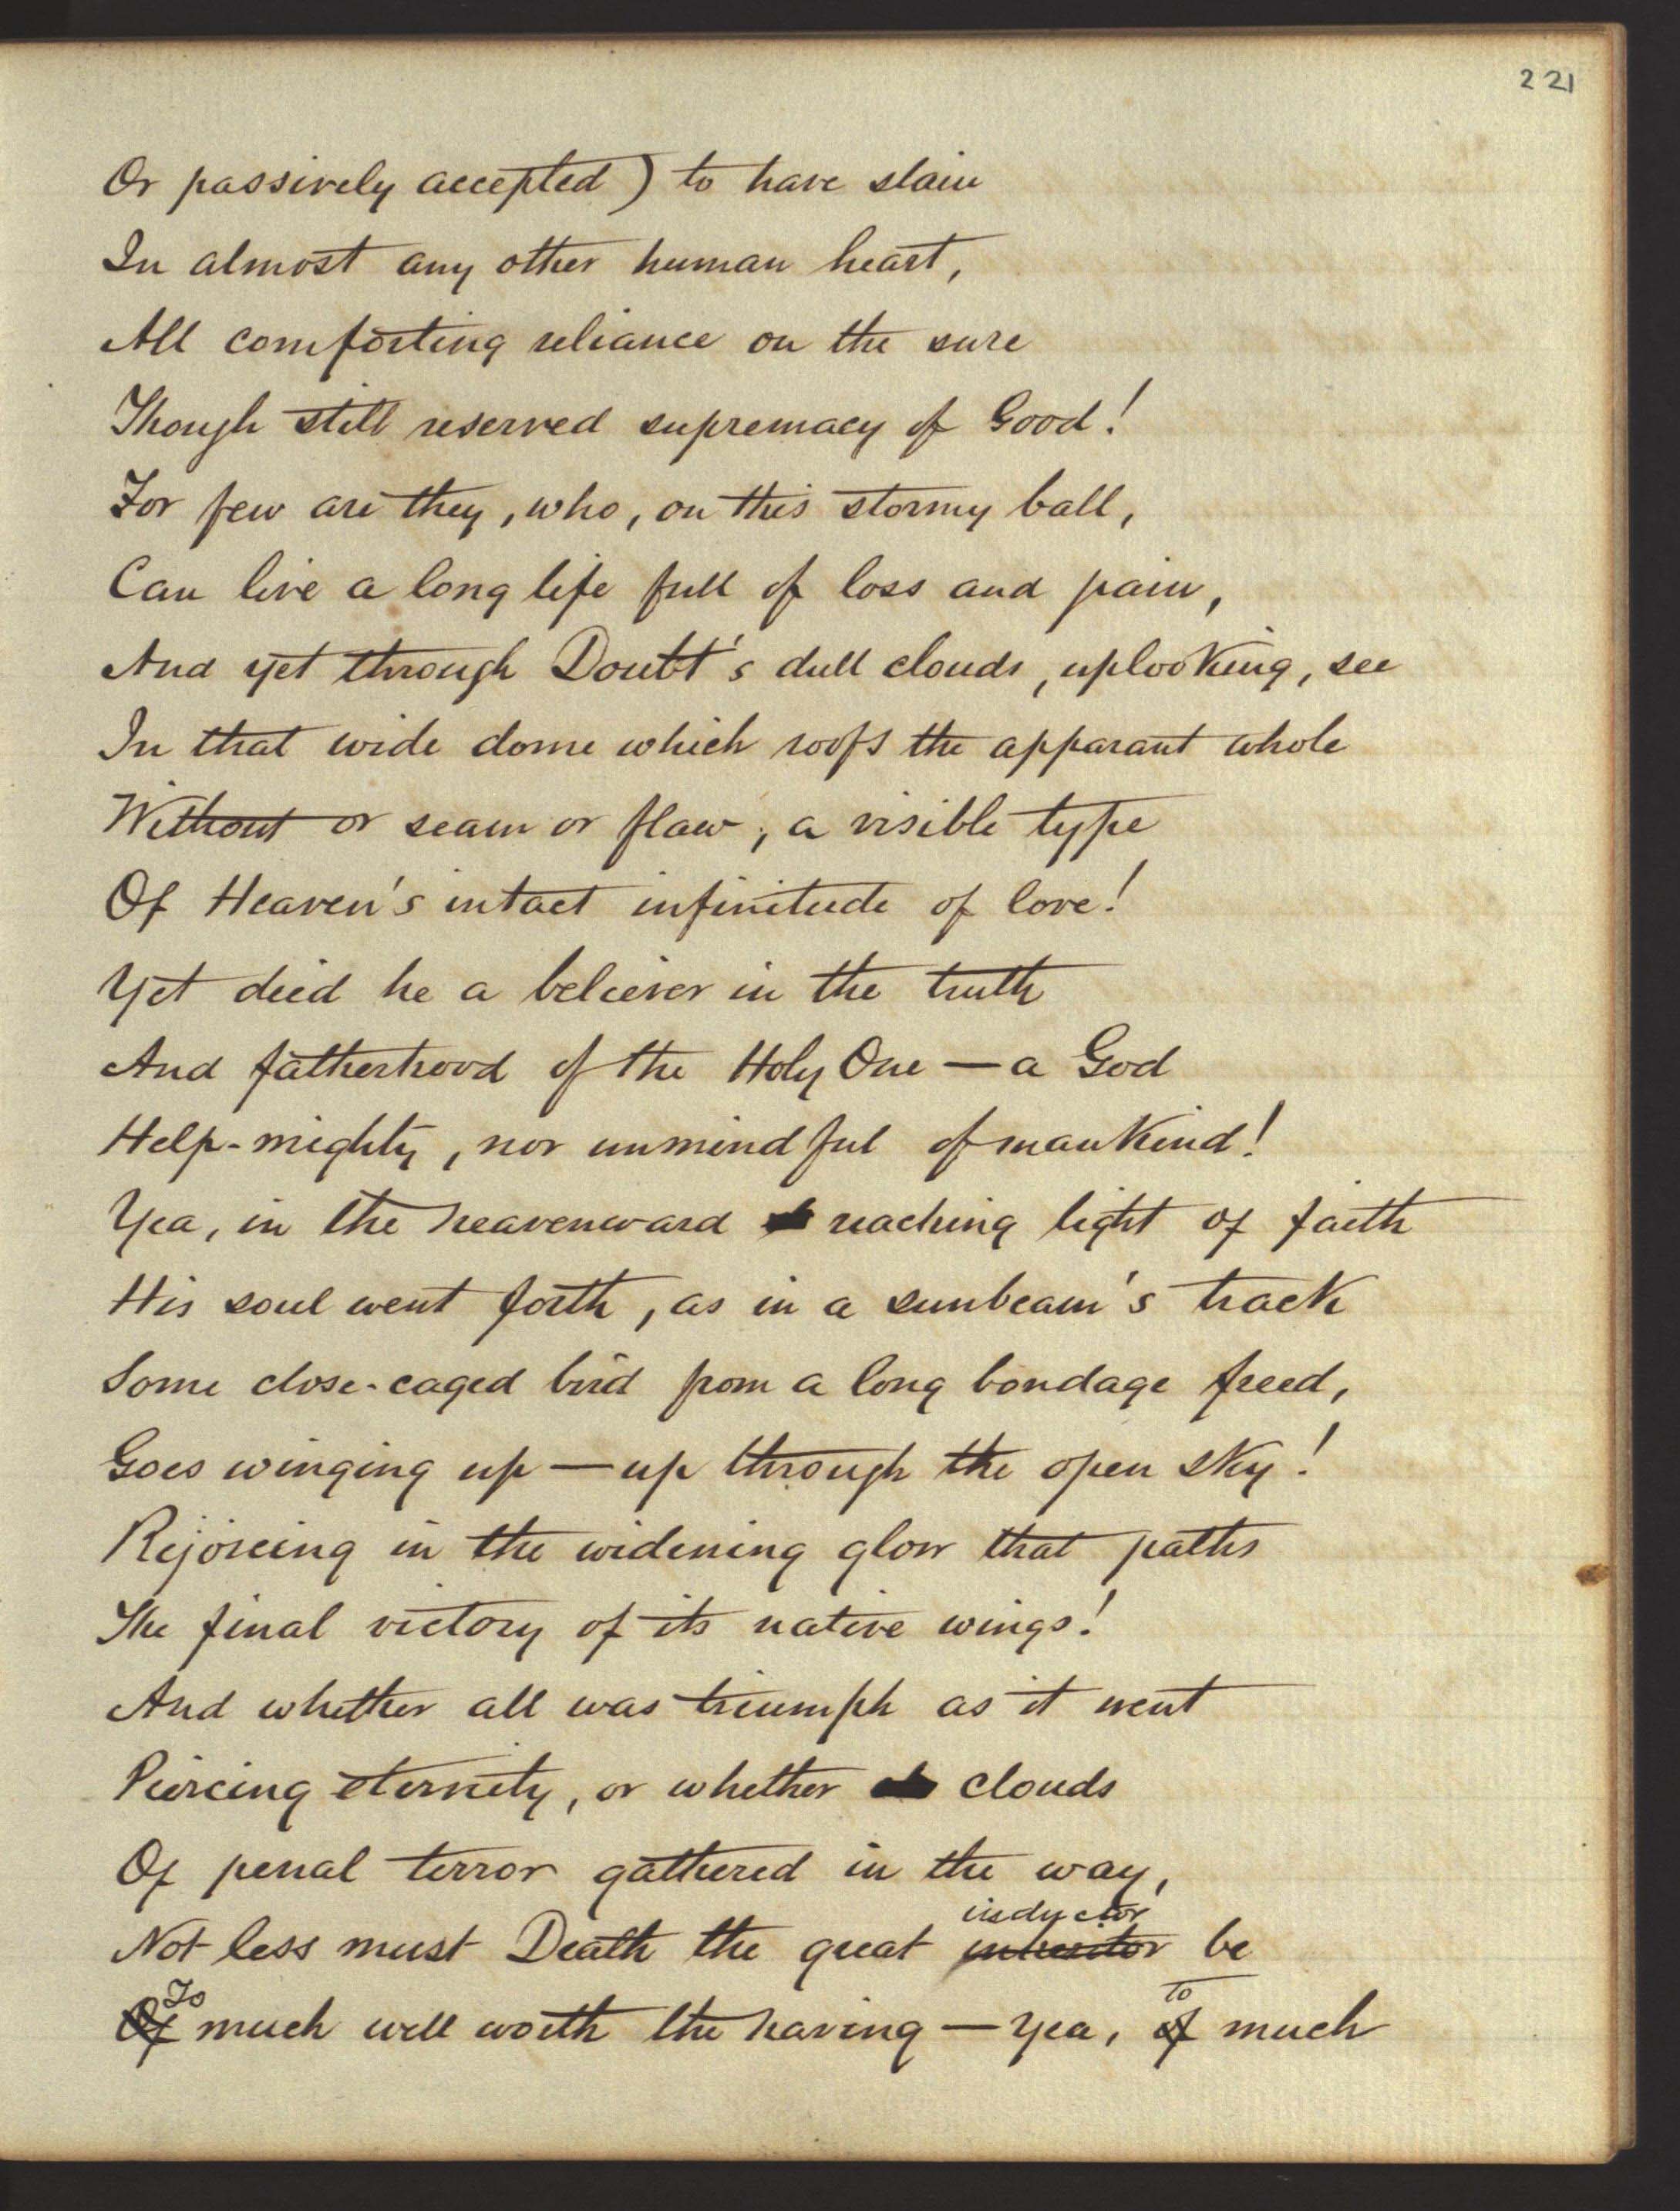 221
Or passively accepted) to have slain
In almost any other human heart,
All comforting reliance on the sure
Though still reserved supremacy of Good!
For few are they, who, on this stormy ball,
Can live a long life full of loss and pain,
And yet through Doubt's dull clouds, uplooking, see
In that wide dome which roofs the apparant whole
Without or seam or flaw, a visible type
Of Heaven's intact infinitude of love!
Yet died he a believer in the truth
And fatherhood of the Holy One — a God
Help-mighty, nor unmindful of mankind!
Yea, in the heavenward reaching light of faith
His soul went forth, as in a sunbeam's track
Some close-caged bird from a long bondage freed,
Goes winging up — up through the open sky!
Rejoicing in the widening glow that paths
The final victory of its native wings!
And whether all was triumph as it went
Piercing eternity, or whether clouds
Of penal terror gathered in the way,
inductor
Not less must Death the great inheritor be
To To
Of much well worth the having — yea, of much